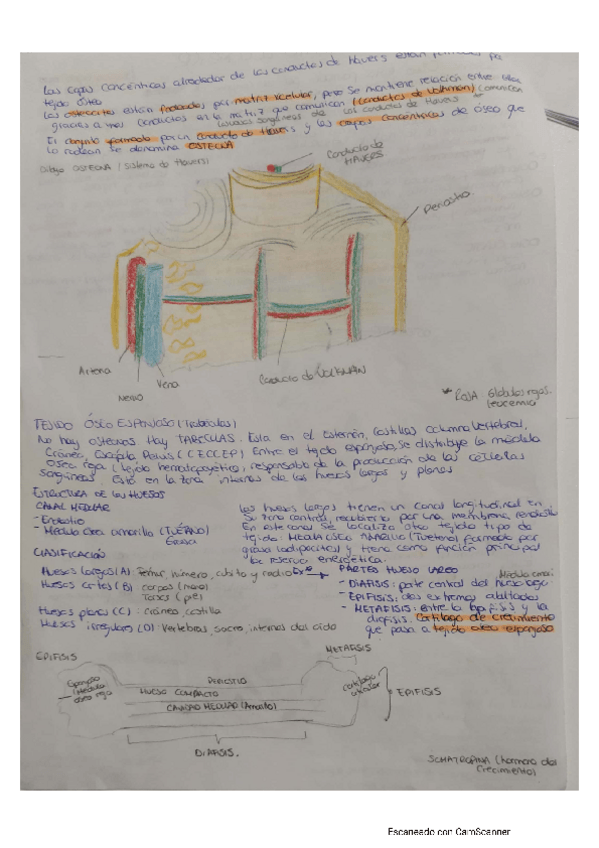 Las capas concéntricas alrededor de los conductos de Havers están
tejido óseo
Los osteocitos están rodeados por matriz, pero se mantiene relación entre
gracias a unos conductos en la matriz que comunican (conductos de Volkman) comunican
vasos sanguíneos de los conductos de Havers
El conjunto formado por un conducto de Havers y las capas concéntricas de óseo que
lo rodean se denomina OSTEONA
Dibujo OSTEONA (Sistema de Havers)
Conducto de
HAVERS
Periostio
Arteria
Nervio
Vena
Conducto de VOLKMAN
* ROJA Glóbulos rojos.
leucemia
TEJIDO ÓSEO ESPONJOSO (Trabéculas)
No hay osteonas Hay TABECULAS. Esta en el Esternón, Costillas Columna Vertebral,
Cráneo, Escápula Pelvis (CECCEP) Entre el tejido esponjoso, se distribuye la médula
Ósea roja (tejido hematopoyético), responsable de la producción de las células
sanguíneas. Está en la zona interna de los huesos largos y planos
ESTRUCTURA DE LOS HUESOS
CANAL MEDULAR
- Endostio
- Médula ósea amarilla (TUÉTANO)
Grasa
Los huesos largos tienen un canal longitudinal en
su zona central, recubierto por una membrana, endostio
En este canal se localiza otro tejido tipo de
tejido: MÉDULA ÓSEA AMARILLA (Tuétano) formado por
grasa (adipocitos) y tiene como función principal
la reserva energética.
CLASIFICACIÓN
Huesos largos (A): Fémur, húmero, cúbito y radio
Huesos cortos (B) Carpos (mano)
Tarsos (pie)
Huesos planos (C): Cráneo, costilla
Huesos irregulares (D): Vértebras, sacro, internos del oído
PARTES HUESO LARGO
- DIÁFISIS: parte central del hueso largo
- EPÍFISIS: dos extremos abultados
- METÁFISIS: entre la epífisis y la
diáfisis. Cartílago de crecimiento
que pasa a tejido óseo esponjoso
EPÍFISIS
METÁFISIS
Esponjoso
(Médula
ósea roja
PERIOSTIO
HUESO COMPACTO
CAVIDAD MEDULAR (Amarilla)
Cartílago
articular
EPÍFISIS
DIÁFISIS.
SOMATROPINA (hormona del
crecimiento)
Escaneado con CamScanner